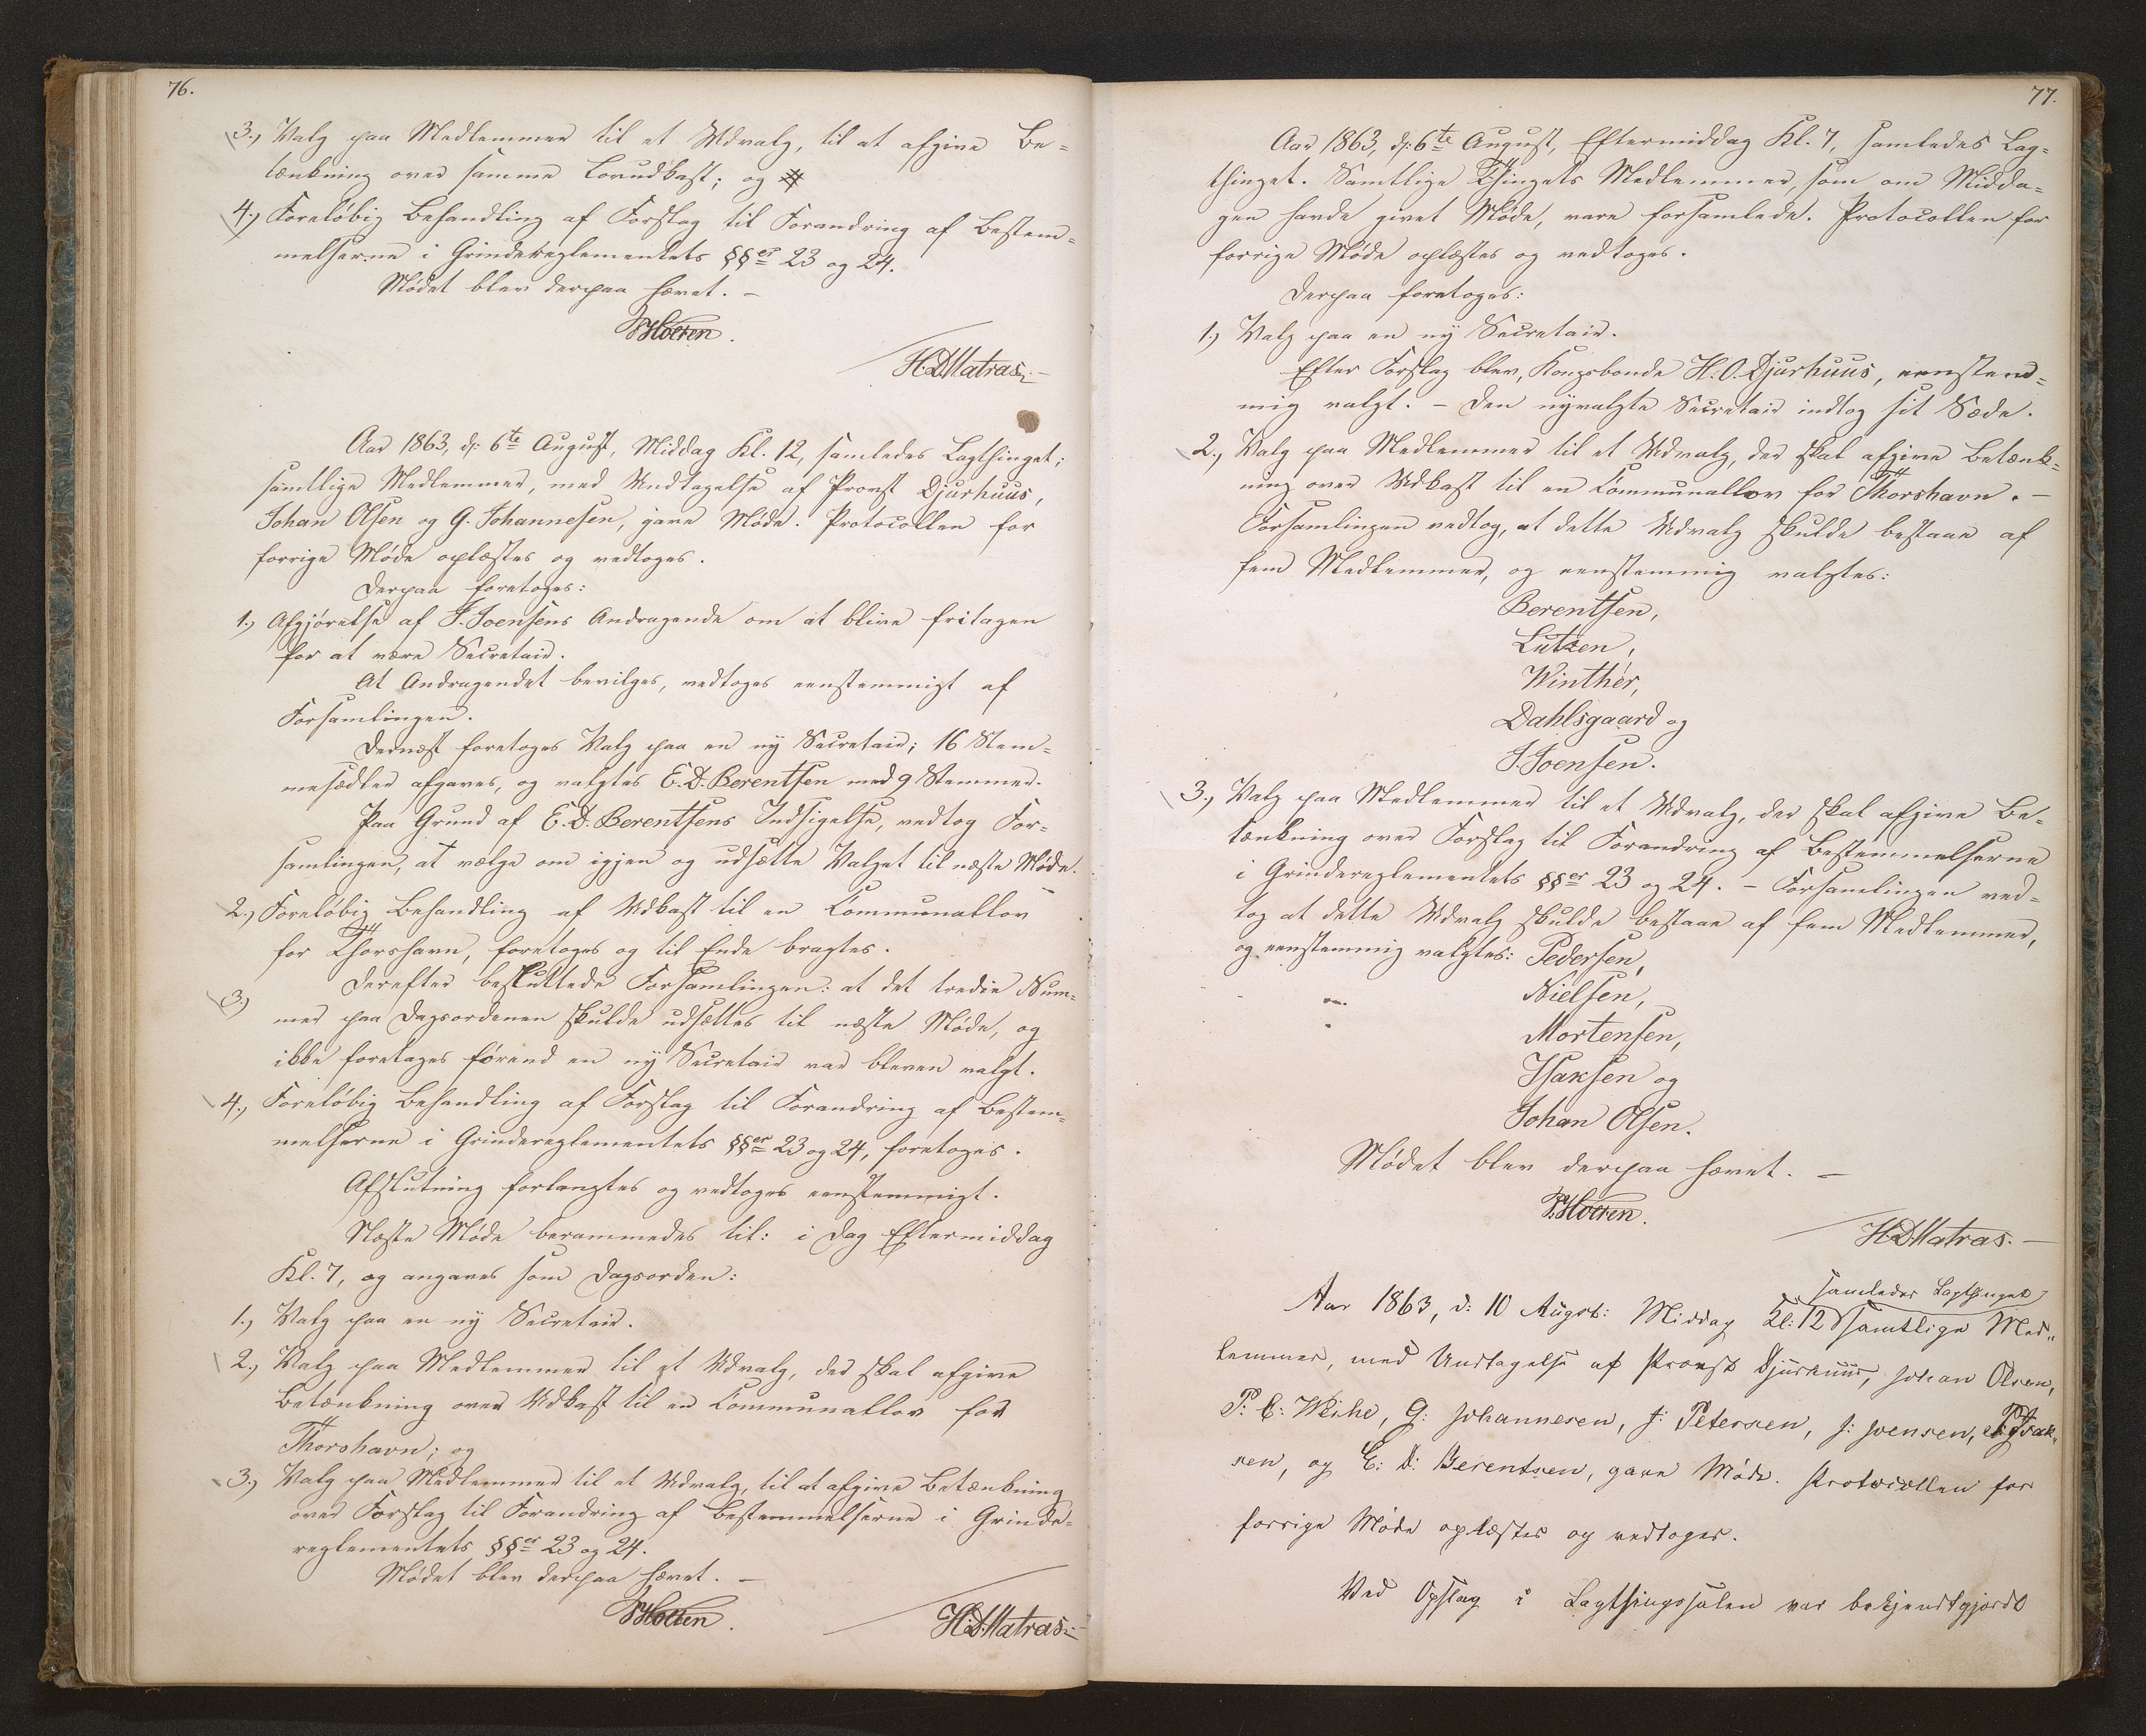 76.
3., Valg paa Medlemmer til et Udvalg, til at afgive Be=
tænkning over samme Lovudkast; og
4., Foreløbig Behandling af Forslag til Forandring af Bestem=
melserne i Grindereglementets §§er 23 og 24.
Mødet blev derpaa hævet. –
Holten.
H.D.Matras.
Aar 1863, d: 6te August, Middag Kl. 12, samledes Lagthinget;
samtlige Medlemmer, med Undtagelse af Provst Djurhuus,
Johan Olsen og G. Johannesen, gave Møde. Protocollen for
forrige Møde oplæstes og vedtoges.
Derpaa foretoges:
1., Afgjørelse af J. Joensens Andragende om at blive fritagen
for at være Secretair.
At Andragendet bevilges, vedtoges eenstemmigt af
Forsamlingen.
Dernæst foretoges Valg paa en ny Secretair; 16 Stem=
mesedler afgaves, og valgtes E.D. Berentsen med 9 Stemmer.
Paa Grund af E.D. Berentsens Indsigelse, vedtog For=
samlingen, at vælge om igjen og udsætte Valget til næste Møde.
2., Foreløbig Behandling af Udkast til en Communallov
for Thorshavn, foretoges og til Ende bragtes.
3.) Derefter besluttede Forsamlingen: at det tredie Num=
mer paa Dagsordenen skulde udsættes til næste Møde, og
ikke foretages førend en ny Secretair var bleven valgt.
4., Foreløbig Behandling af Forslag til Forandring af Bestem=
melserne i Grindereglementets §§er 23 og 24, foretoges.
Afslutning forlangtes og vedtoges eenstemmigt.
Næste Møde berammedes til: i Dag Eftermiddag
Kl. 7, og angaves som Dagsorden:
1., Valg paa en ny Secretair.
2., Valg paa Medlemmer til et Udvalg, der skal afgive
Betænkning over Udkast til en Communallov for
Thorshavn; og
3., Valg paa Medlemmer til et Udvalg, til at afgive Betænkning
over Forslag til Forandring af Bestemmelserne i Grinde=
reglementets §§er 23 og 24.
Mødet blev derpaa hævet. –
Holten.
H.D.Matras.
77.
Aar 1863, d: 6te August, Eftermiddag Kl. 7, samledes Lag=
thinget. Samtlige Thingets Medlemmer, som om Midda=
gen havde givet Møde, vare forsamlede. Protocollen for
forrige Møde oplæstes og vedtoges.
Derpaa foretoges:
1., Valg paa en ny Secretair.
Efter Forslag blev, Kongsbonde H.O. Djurhuus, eenstem=
mig valgt. – Den nyvalgte Secretair indtog sit Sæde.
2., Valg paa Medlemmer til et Udvalg, der skal afgive Betænk=
ning over Udkast til en Communallov for Thorshavn. –
Forsamlingen vedtog, at dette Udvalg skulde bestaae af
fem Medlemmer, og eenstemmig valgtes:
Berentsen,
Lutzen,
Winther,
Dahlsgaard og
J. Joensen.
3., Valg paa Medlemmer til et Udvalg, der skal afgive Be=
tænkning over Forslag til Forandring af Bestemmelserne
i Grindereglementets §§er 23 og 24. – Forsamlingen ved=
tog at dette Udvalg skulde bestaae af fem Medlemmer,
og eenstemmig valgtes: Pedersen,
Nielsen,
Mortensen,
Isaksen og
Johan Olsen.
Mødet blev derpaa hævet. –
Holten.
H.D.Matras. –
samledes Lagthinget
Aar 1863, d: 10 Augst: Middag Kl: 12 Samtlige Med„
lemmer, med Undtagelse af Provst Djurhuus, Johan Olsen,
P: C: Weihe, G: Johannesen, J: Petersen, J: Joensen, Isak„
sen, og E: D: Berentsen, gave Møde. Protocollen for
forrige Møde oplæstes og vedtoges.
Ved Opslag i Lagthingssalen var bekjendtgjordt